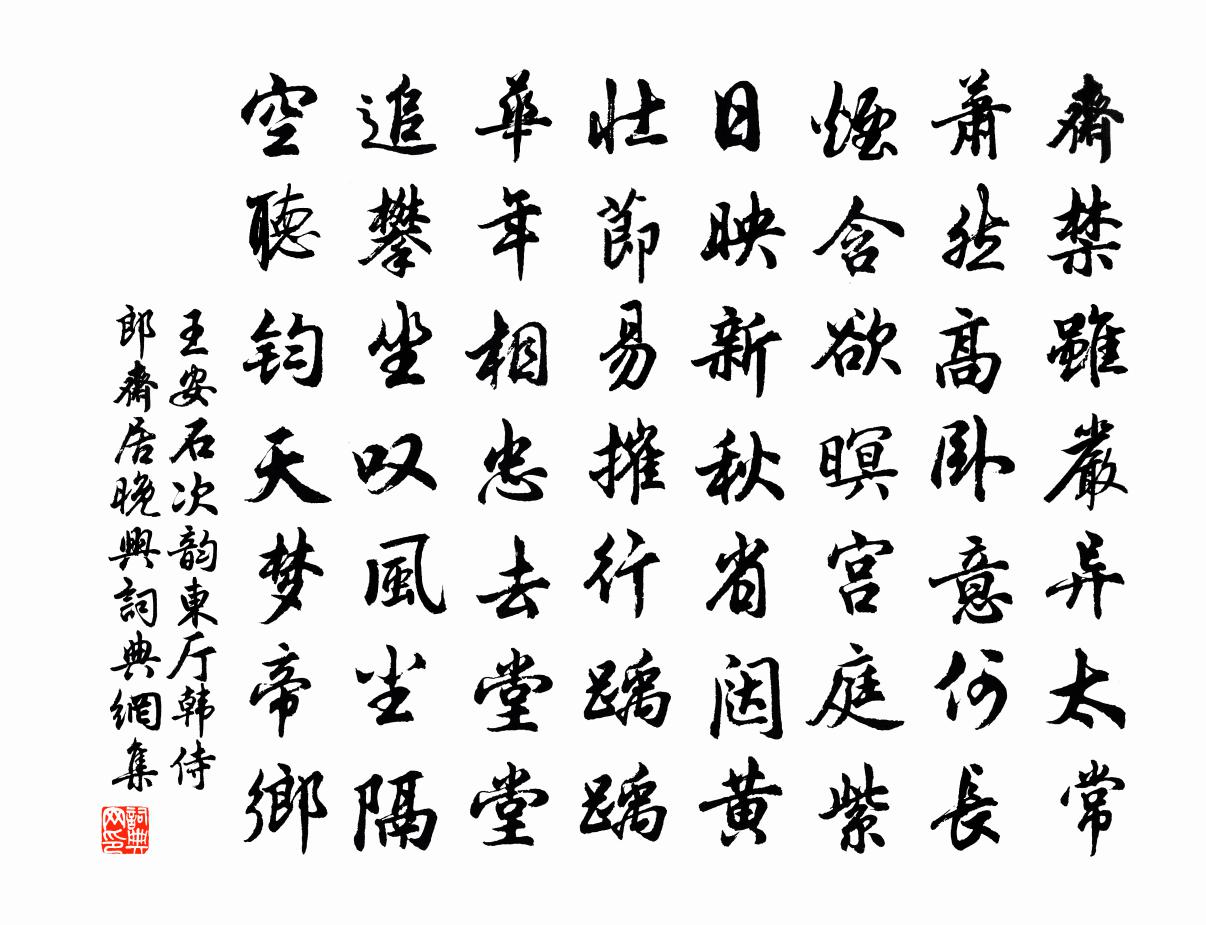 齋禁雖嚴异太常
萧然高卧意何長
煙含欲暝宫庭紫
日映新秋省闼黄
壮節易摧行踽踽
華年相忠去堂堂
追攀坐叹風尘隔
空聽钧天梦帝鄉
王安石次韵東厅韩侍
郎齋居晚興詞典網集
詞典
网印